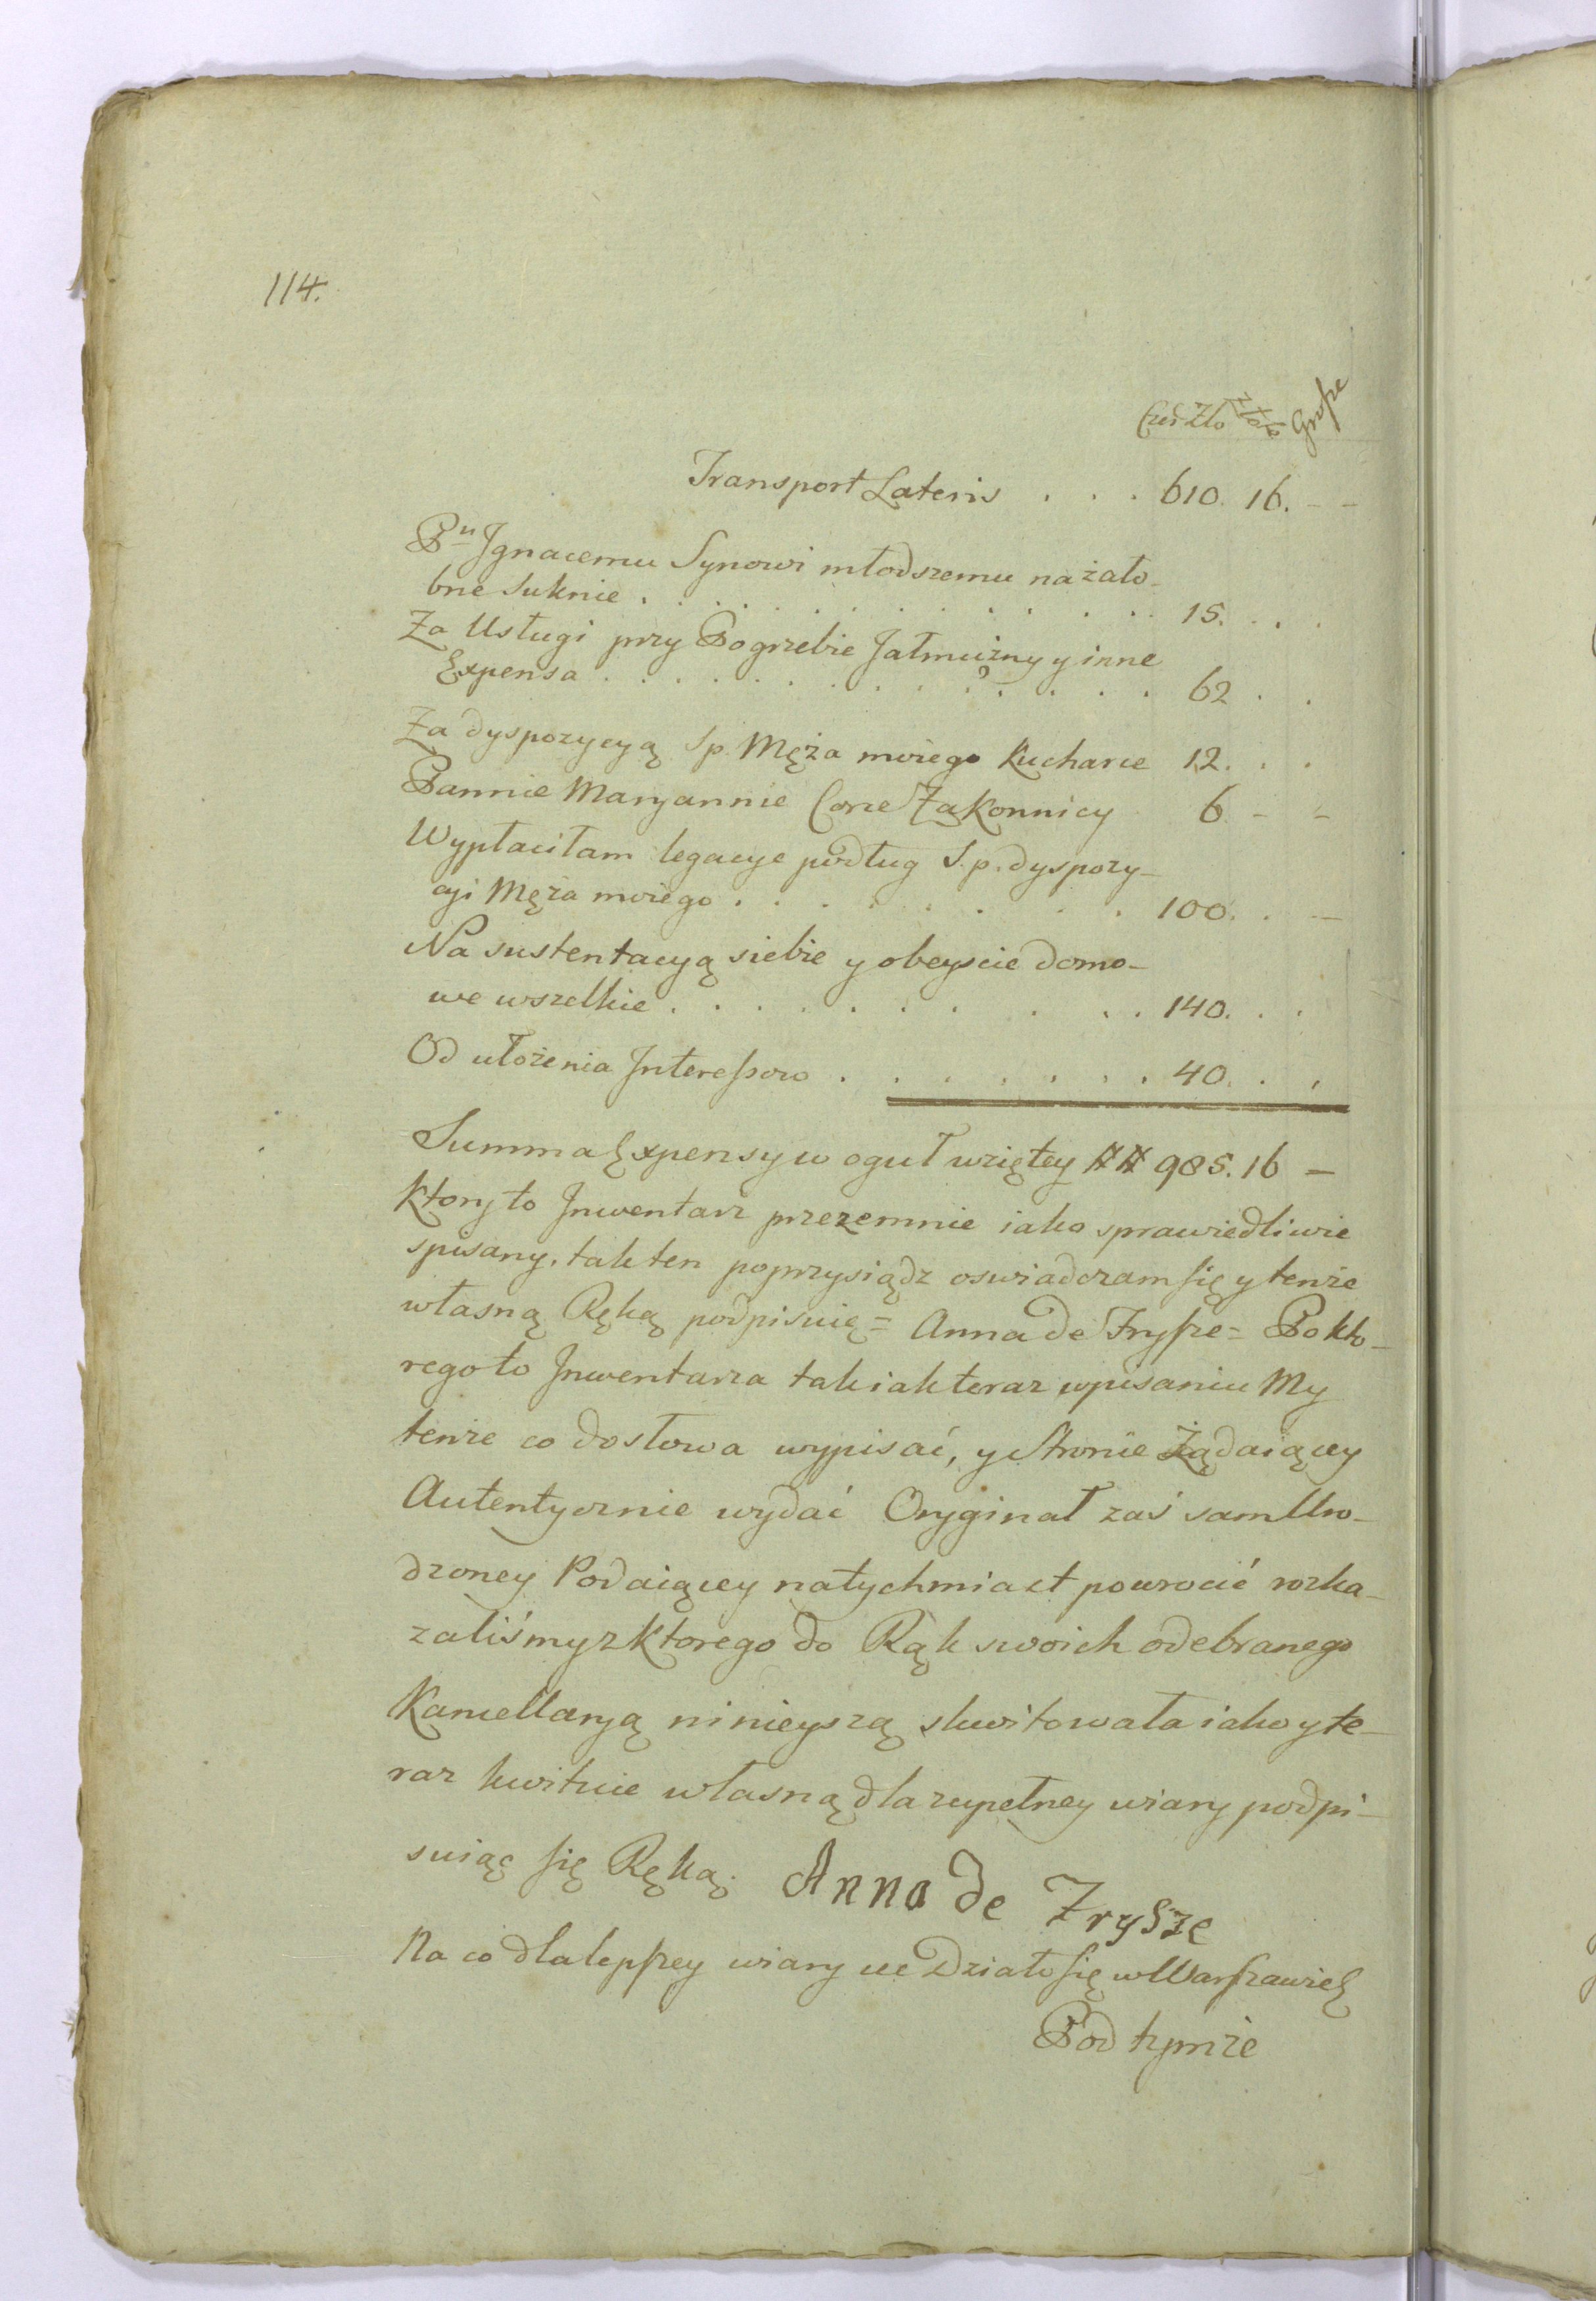 114.
Czer Zło Złote Grosze
Transport Lateris . . . 610. 16. - -
Pu Jgnacemu Synowi młodszemu na żało-
bne suknie . . . . . . . . . . . . 15. . . .
Za Usługi przy Pogrzebie Jałmużny y inne
Expensa . . . . . . . . . . . . 62 . .
Za dyspozycyą Sp. Męża moiego Kucharce 12. . .
Pannie Maryannie Corce Zakonnicy 6 - -
Wypłaciłam legacye podług S. p. dyspozy-
cyi Męża moiego . . . . . . . . 100. . -
Na sustentacyą siebie y obeyscie domo-
we wszelkie . . . . . . . . . . 140. . .
Od ułożenia Jnteressow . . . . . . . 40. . .
Summa Expensy w oguł wziętey ## 985. 16 -
Ktory to Jnwentarz przezemnie iako sprawiedliwie
spisany, tak ten poprzysiądz oswiadczam się y tenże
własną Ręką podpisuię = Anna de Frysze = Po kto-
rego to Jnwentarza tak iak teraz wpisaniu My
tenże co do słowa wypisać, y Stronie Żądaiącey
Autentycznie wydać Oryginał zaś sam Uro-
dzoney Podaiącey natychmiast powrocić rozka-
zaliśmy z ktorego do Rąk swoich odebranego
Kancellaryą ninieyszą skwitowała iako y te-
raz kwituie własną dla zupełney wiary podpi-
suiąc się Ręką. Anna de Frysze
Na co dla lepszey wiary etc Działo się w Warszawie
Pod tymże